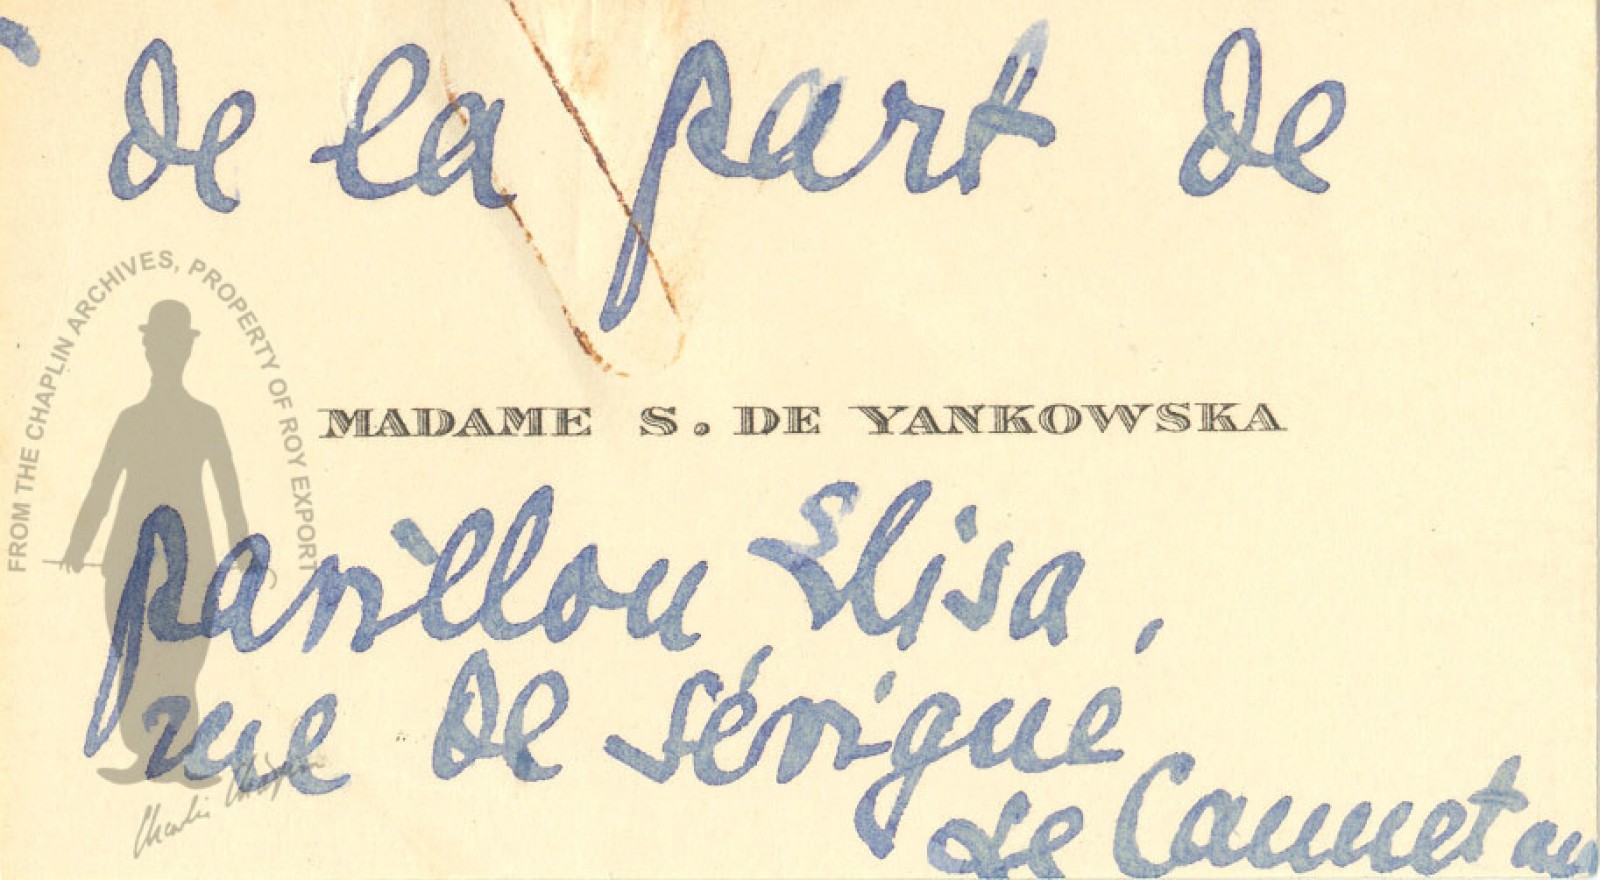 de la part de
MADAME S. DE YANKOWSKA
pavillon Elisa,
rue de Sévigne
Le Cannet
FROM THE CHAPLIN ARCHIVES, PROPERTY OF ROY EXPORT
Charlie Chaplin